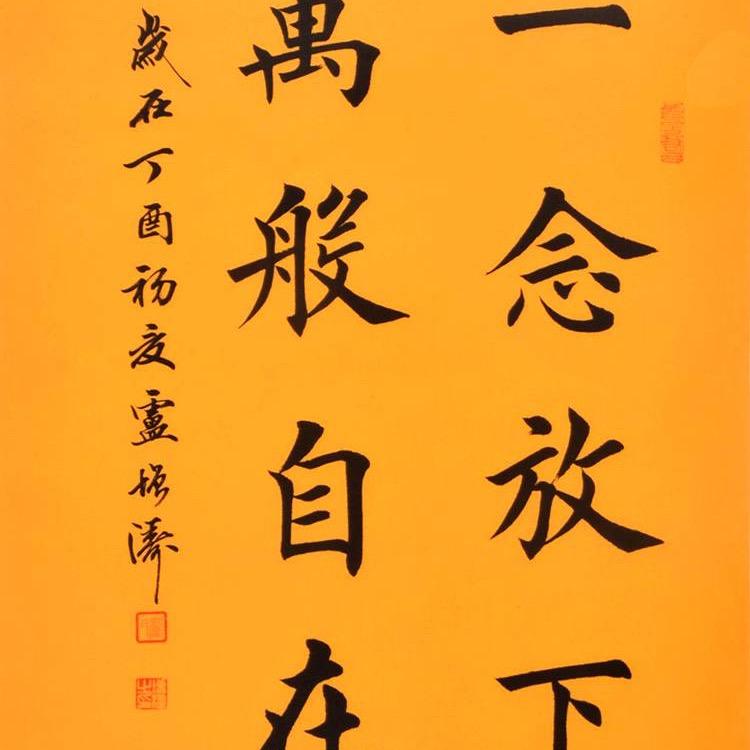 一念放下
萬般自在
歲在丁酉初夏盧濤